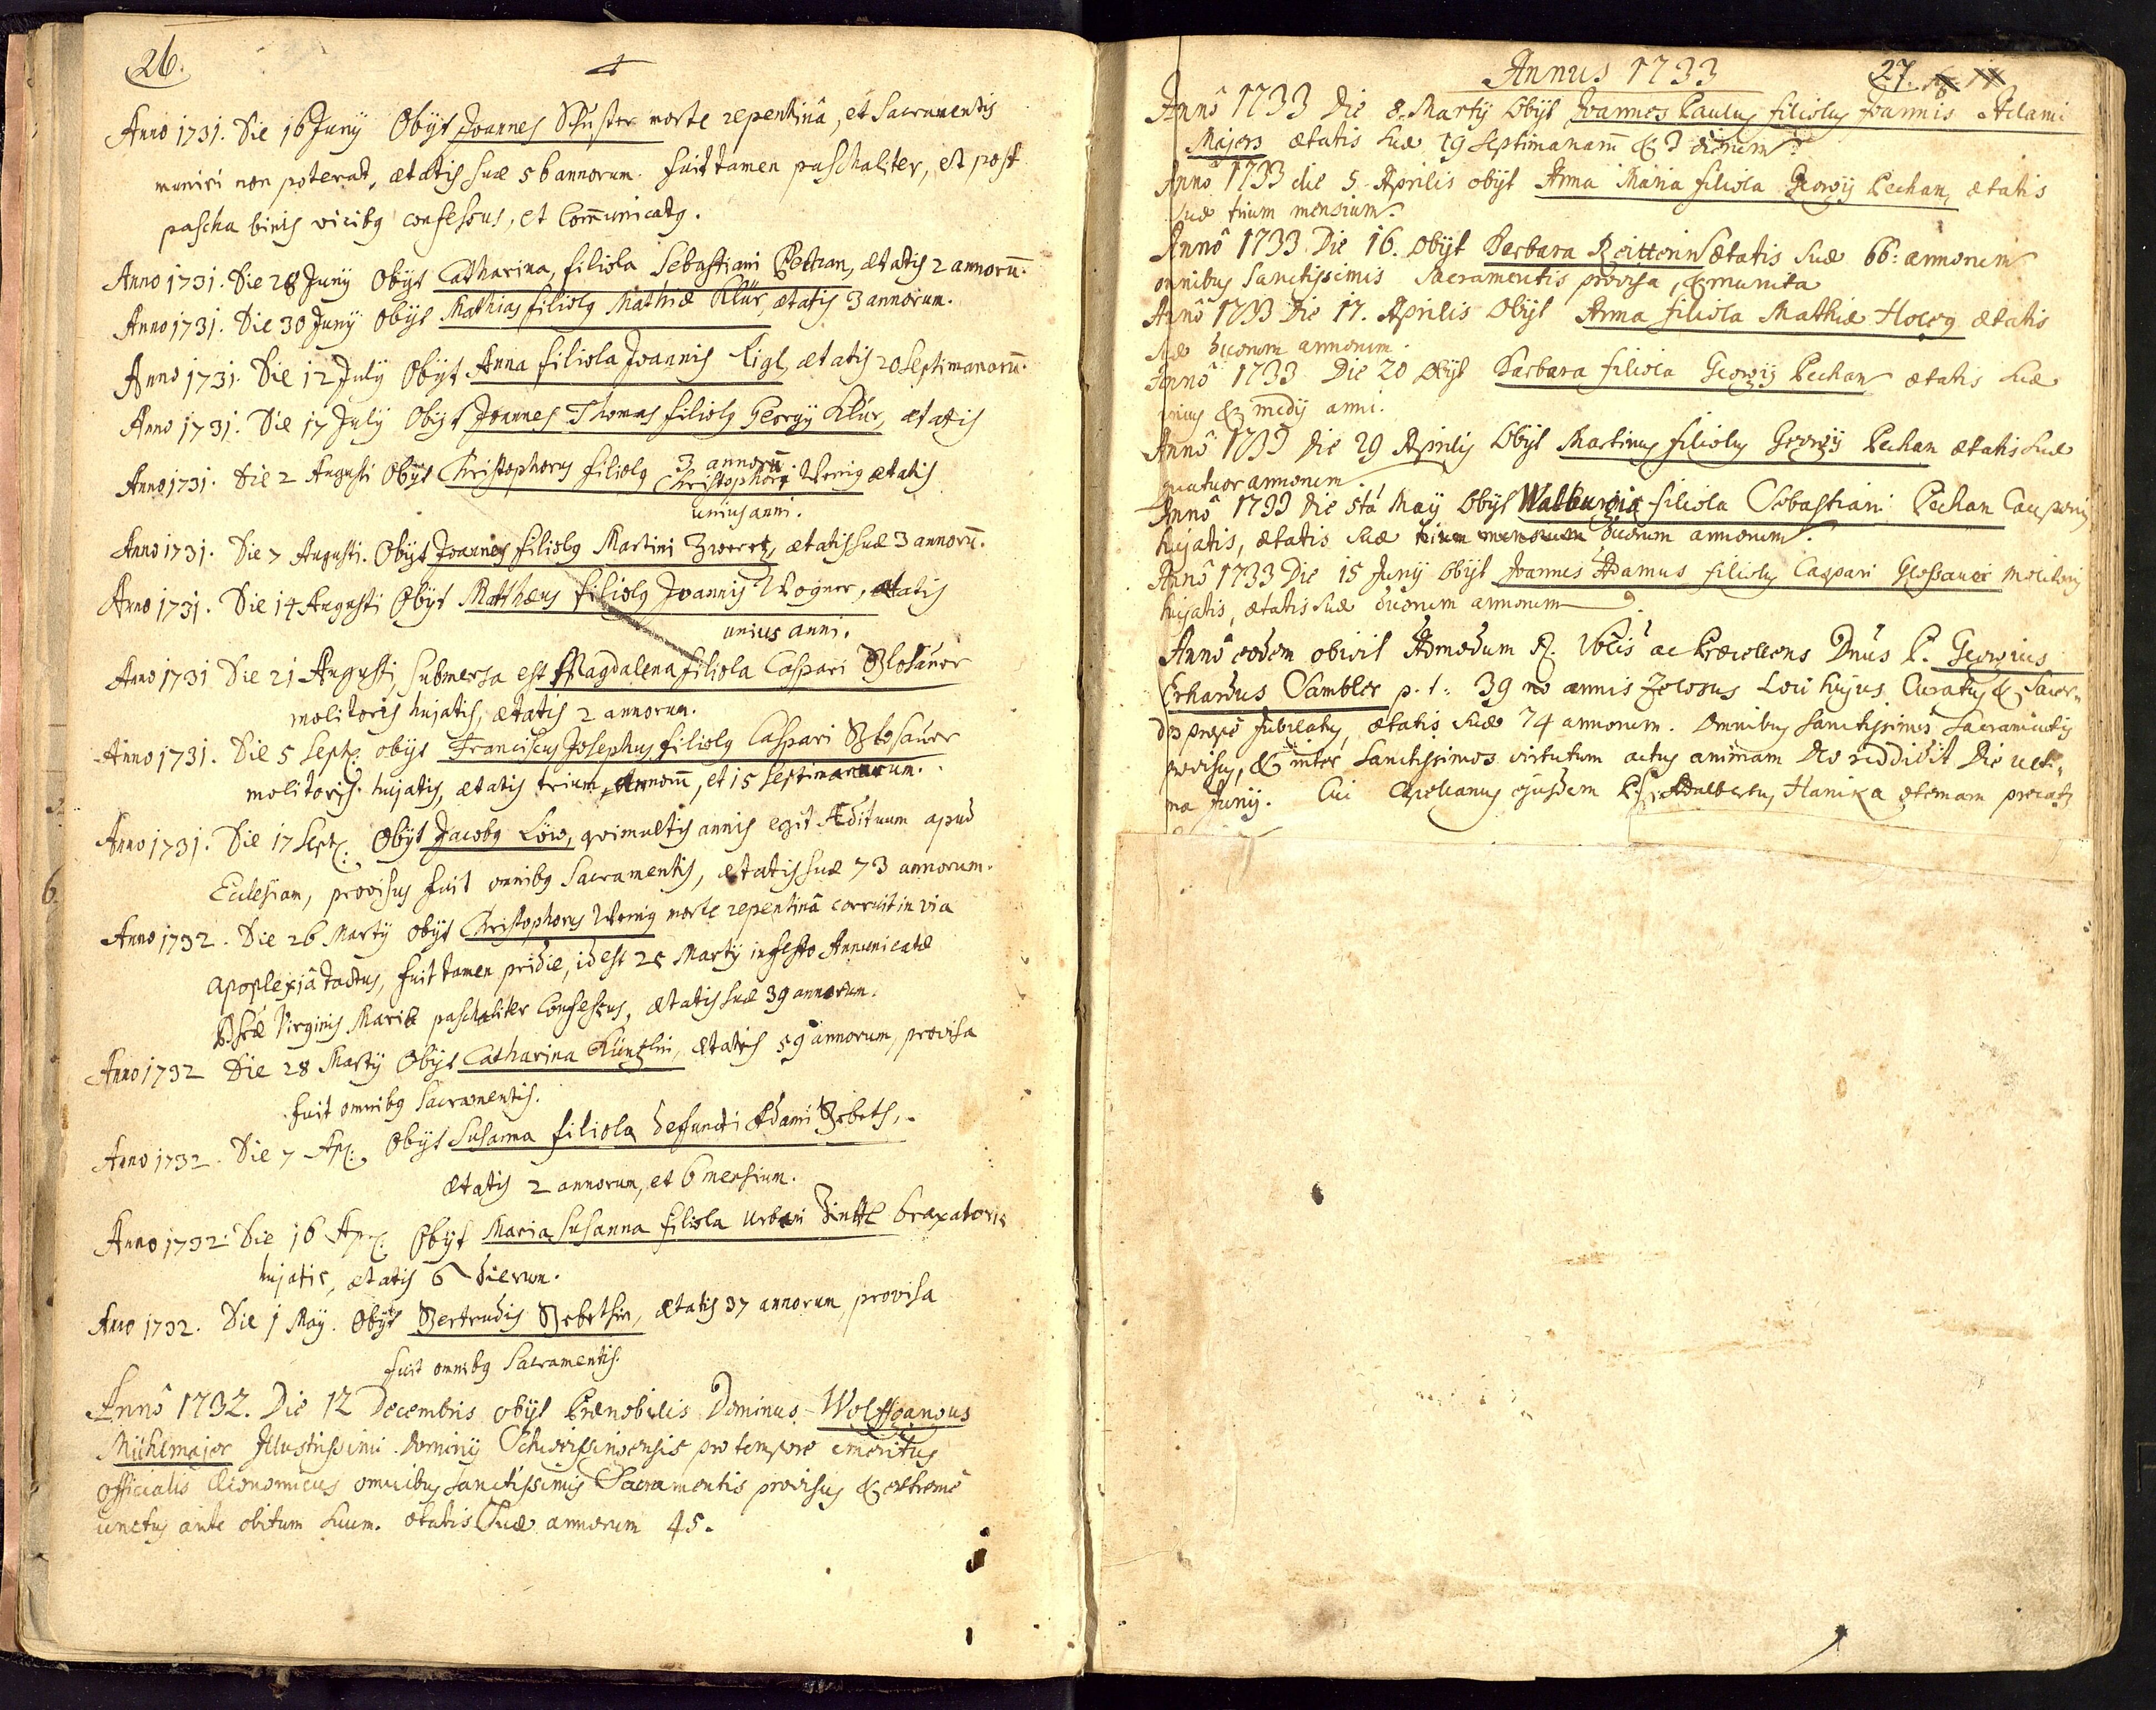 26.
Anno 1731. Die 16 Juny Obyt Joannes Schuster morte repentinâ, et Sacramentis
muniri non poterat, ætatis suæ 56 annorum. fuit tamen paschaliter, et post
pascha binis vicibg confessus, et Com̄unicatg.
Anno 1731. Die 28 Juny Obyt Catharina, filiola Sebastiani Pechan, ætatis 2 annorū.
Anno 1731. Die 30 Juny Obyt Mathias filiolg Mathiæ Klür, ætatis 3 annorum.
Anno 1731. Die 12 July Obyt Anna filiola Joannis Rigl, ætatis 20 septimanorū.
Anno 1731. Die 17 July Obyt Joannes Thomas filiolg Georgy Klür, ætatis
3 annorū.
Anno 1731. Die 2 Augusti Obyt Christophorus filiolg Christophori Wenig ætatis
unius anni.
Anno 1731. Die 7 Augusti. Obyt Joannes filiolg Martini Zweretz, ætatis suæ 3 annorū.
Anno 1731. Die 14 Augusti Obyt Matthæus filiolg Joannis Wogner, ætatis
unius anni.
Anno 1731 Die 21 Augusti submersa est Magdalena filiola Caspari Glosauer
molitoris hujatis, ætatis 2 annorum.
Anno 1731. Die 5 Sept: obyt Franciscus Josephus filiolg Caspari Glosauer
molitoris hujatis, ætatis trium Annorū, et 15 septimanarum.
Anno 1731. Die 17 Sept: Obyt Jacobg Löw, qvi multis annis egit Ædituum apud
Ecclesiam, provisus fuit omnibg Sacramentis, ætatis suæ 73 annorum.
Anno 1732. Die 26 Marty obyt Christophorus Wenig morte repentinâ corruit in via
Apoplexiâ tactus, fuit tamen pridie, id est 25 Marty in festo Annunicatæ
Virginis Mariæ paschaliter Confessus, ætatis suæ 39 annorum.
Anno 1732 Die 28 Marty Obyt Catharina Küntzlin, ætatis 59 annorum, provisa
fuit omnibg Sacramentis.
Anno 1732. Die 7 Ap: Obyt Susanna filiola deffuncti Adami Gebeth,
ætatis 2 annorum, et 6 mensium.
Anno 1732. Die 16 Apr: Obyt Maria Susanna filiola Urbani Zintl braxatoris
hujatis, ætatis 6 dierum.
Anno 1732. Die 1 May. Obyt Gertrudis Gebethin, ætatis 37 annorum provisa
fuit omnibg Sacramentis.
Annô 1732. Die 12 Decembris obyt Prænobilis Dominus Wolffgangus
Mühlmajer Illustrissimi dominy Schweissingensis pro tempore emeritus
officialis Œconomicus omnibus sanctissimis Sacramentis provisus & extremè
unctus ante obitum suum. ætatis suæ annorum 45.
Annus 1733 27.
Annô 1733 Die 8. Marty obyt Joannes Paulus filiolus Joannis Adami
Majers ætatis suæ 19 septimanarū & 3 dierum.
Annô 1733 die 5. Aprilis obyt Anna Maria filiola Georgy Pechan, ætatis
suæ trium mensium.
Annô 1733 Die 16. obyt Barbara Reitterin ætatis suæ 66. annorum
omnibus sanctissimis Sacramentis provisa, & munita
Annô 1733 Die 17. Aprilis obyt Anna filiola Mathiæ ætatis
suæ duorum annorum.
Annô 1733 Die 20 obyt Barbara filiola Georgij Pechan ætatis suæ
unius & medij anni.
Annô 1733 Die 29 Aprilis obyt Martinus filiolus Georgij Pechan ætatis suæ
quatuor annorum.
Annô 1733 Die 5tâ May obyt Walburgis filiola Sebastiani Pechan Cauponis
hujatis, ætatis suæ trium mensium duorum annorum.
Annô 1733 Die 15 Juny obyt Joannes Adamus filiolus Caspari Glossauer molitoris
hujatis, ætatis suæ duorum annorum
Annô eodem obivit Admodum R. Nblis ac Præcellens Dnus P. Georgius
Erhardus Sambler p. t. 39 no annis Zelosus Loci hujus Curatus & Sacer=
dos propè Jubilatus, ætatis suæ 74 annorum. Omnibus sanctissimis Sacramentis
provisus, & inter Sanctissimos virtutum actus animam Deo reddidit Die ulti=
ma Junij. Cui Capellanus ejusdem Adalbertus Hanika æternam precatq